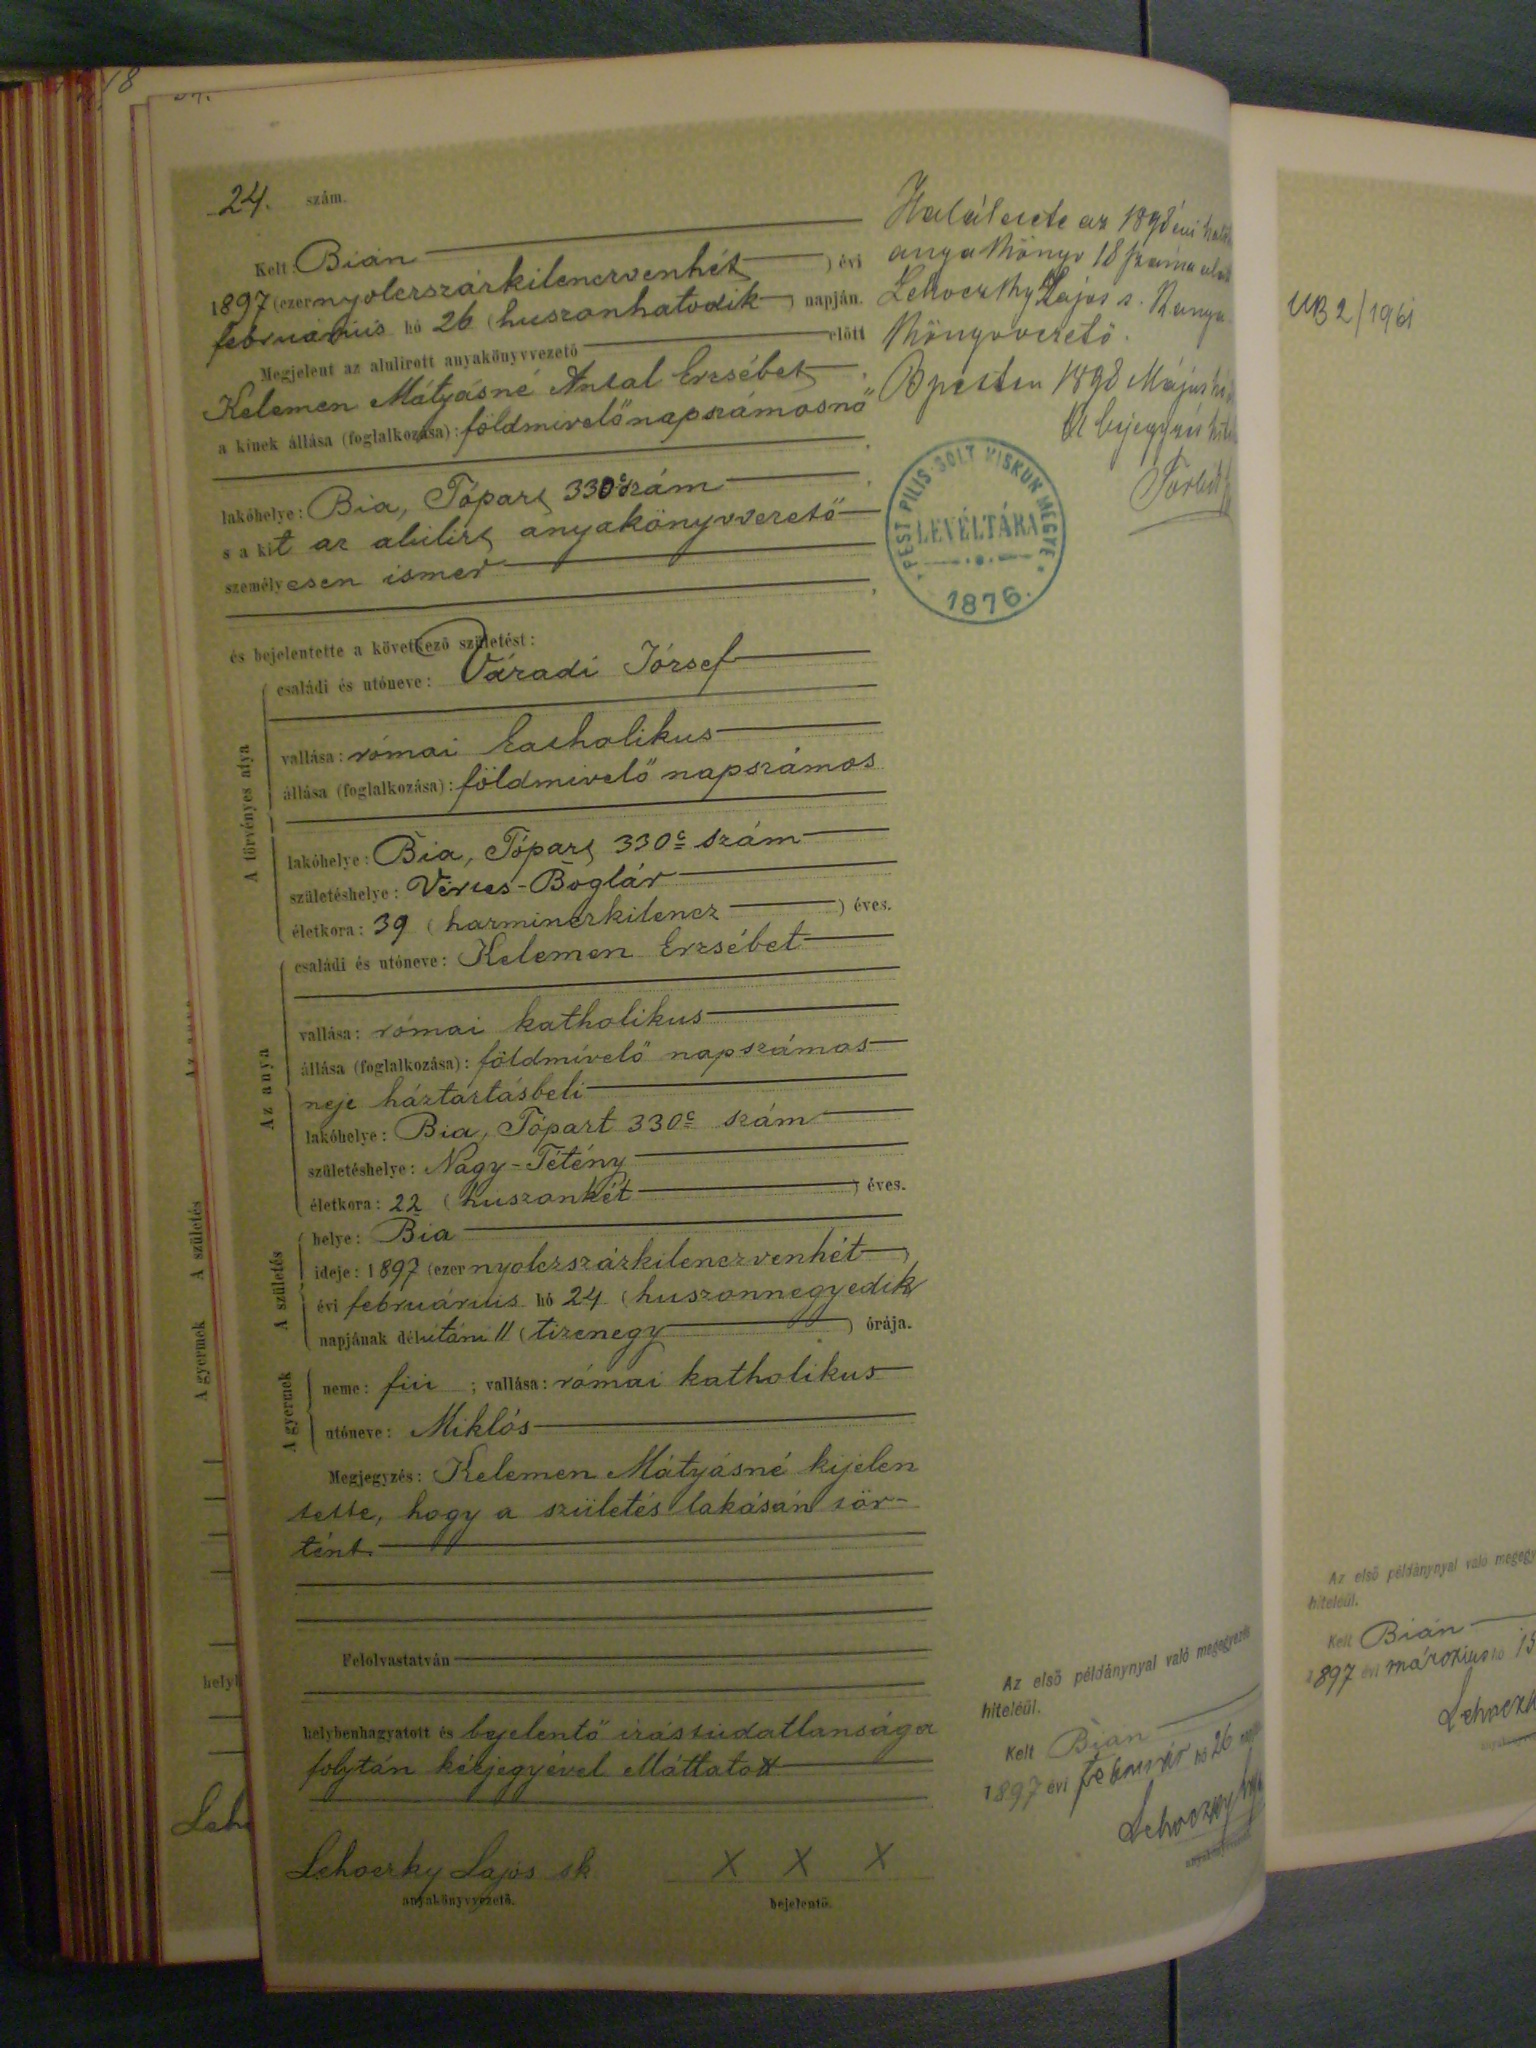 24. szám.
Kelt: Bián
1897 (ezernyolczszázkilenczvenhét) évi
február hó 26 (huszonhatodik) napján.
Megjelent az alulirott anyakönyvvezető előtt
Kelemen Mátyásné Antal Erzsébet,
a kinek állása (foglalkozása): földmivelő napszámosnő
lakóhelye: Bia, Tópart 330c szám,
s a kit az alulirt anyakönyvvezető
személyesen ismer,
és bejelentette a következő születést:
A törvényes atya
családi és utóneve: Váradi József
vallása: római katholikus
állása (foglalkozása): földmivelő napszámos
lakóhelye: Bia, Tópart 330c szám
születéshelye: Vércs-Boglár
életkora: 39 (harminczkilencz) éves.
Az anya
családi és utóneve: Kelemen Erzsébet
vallása: római katholikus
állása (foglalkozása): földmívelő napszámos
neje háztartásbeli
lakóhelye: Bia, Tópart 330c szám
születéshelye: Nagy-Tétény
életkora: 22 (huszonkét) éves.
A születés
helye: Bia
ideje: 1897 (ezernyolczszázkilenczvenhét)
évi február hó 24 (huszonnegyedik)
napjának délutáni 11 (tizenegy) órája.
A gyermek
neme: fiú; vallása: római katholikus
utóneve: Miklós
Megjegyzés: Kelemen Mátyásné kijelen
tette, hogy a születés lakásán tör-
tént.
Felolvastatván
helybenhagyatott és bejelentő irástudatlansága
folytán kézjegyével elláttatott
Lehoczky Lajos sk
anyakönyvvezető.
X X X
bejelentő.
Halálesete az 1898 évi
anyakönyv 18 száma alatt
Lehoczky Lajos s. k anya
könyvvezető.
Bpesten 1898 Május
A bejegyzés
PEST PILIS-SOLT KISKUN MEGYE
LEVÉLTÁRA
1876.
Az első példánynyal való megegyezés
hiteléül.
Kelt Bián
1897 évi február hó 26
Lehoczky
UB 2/1961
Az első példánynyal való megegy
hiteléül.
Kelt Bián
1897 évi márczius hó 15
Lehoczk
A születés
A gyermek
helyb
Leho
18